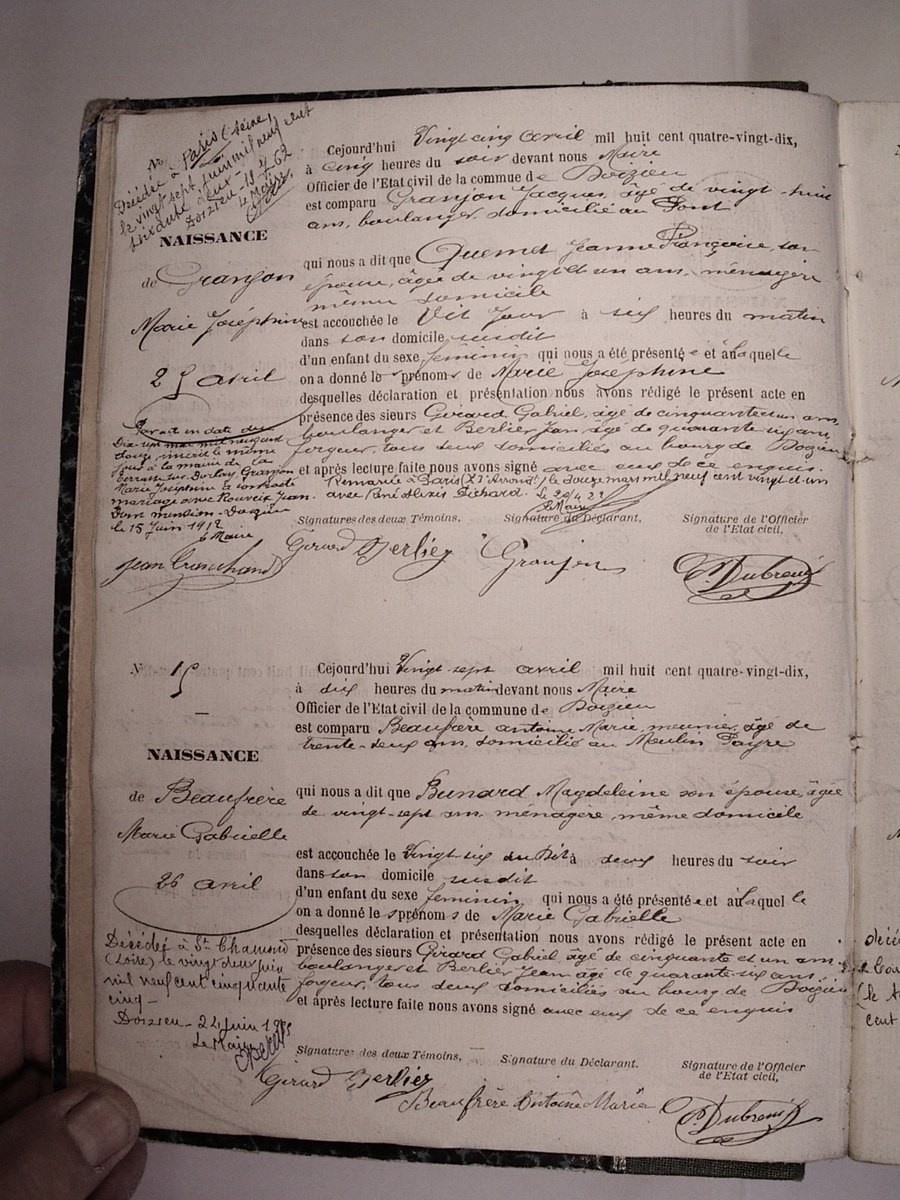 Décédée à Paris (Seine)
le vingt sept juin mil neuf cent
soixante deux -
Doizieu - 18-7-62
Le Maire,
NAISSANCE
de Granjon
Marie Joséphine
25 avril
Par acte en date du
Dix-un mai mil neuf cent
douze, inscrit le même
jour à la mairie de la
Terrasse sur Dorlay, Granjon
Marie Joséphine a contracté
mariage avec Rouveix Jean.
Dont mention - Doizieu
le 15 Juin 1912
Le Maire
Cejourd'hui Vingt cinq avril mil huit cent quatre-vingt-dix,
à cinq heures du soir devant nous Maire
Officier de l'Etat civil de la commune de Doizieu
est comparu Granjon Jacques, âgé de vingt-huit
ans, boulanger domicilié au Pont
qui nous a dit que Quemet Jeanne Françoise, son
épouse, âgée de vingt et un ans, ménagère
même domicile
est accouchée le dit jour à six heures du matin
dans son domicile susdit
d'un enfant du sexe féminin qui nous a été présentée et à laquelle
on a donné les prénoms de Marie Joséphine
desquelles déclaration et présentation nous avons rédigé le présent acte en
présence des sieurs Girard Gabriel, âgé de cinquante et un ans,
boulanger et Berlier Jean, âgé de quarante six ans,
forgeur, tous deux domiciliés au bourg de Doizieu
et après lecture faite nous avons signé avec eux de ce enquis.
Remariée à Paris (XIe Arrond.) le douze mars mil neuf cent vingt et un
avec René Alexis Bichard. Le 20/4 21
Le Maire
Signatures des deux Témoins. Signature du Déclarant, Signature de l'Officier
de l'Etat civil,
Girard Berlier Granjon P. Dubreuil
N° 15
NAISSANCE
de Beaufrère
Marie Gabrielle
26 avril
Décédée à St Chamond
(Loire) le vingt deux juin
mil neuf cent cinquante
cinq -
Doizieu - 24 juin 1955
Le Maire
Cejourd'hui Vingt sept avril mil huit cent quatre-vingt-dix,
à dix heures du matin devant nous Maire
Officier de l'Etat civil de la commune de Doizieu
est comparu Beaufrère Antoine Marie, meunier, âgé de
trente-deux ans, domicilié au Moulin Fayre
qui nous a dit que Bunard Magdeleine son épouse, âgée
de vingt-sept ans, ménagère, même domicile
est accouchée le Vingt-six du dit à deux heures du soir
dans son domicile susdit
d'un enfant du sexe féminin qui nous a été présentée et à laquelle
on a donné les prénoms de Marie Gabrielle
desquelles déclaration et présentation nous avons rédigé le présent acte en
présence des sieurs Girard Gabriel âgé de cinquante et un ans
boulanger et Berlier Jean âgé de quarante-six ans
forgeur, tous deux domiciliés au bourg de Doizieu
et après lecture faite nous avons signé avec eux de ce enquis
Signatures des deux Témoins, Signature du Déclarant. Signature de l'Officier
de l'Etat civil,
Girard Berlier
Beaufrère Antoine Marie P. Dubreuil